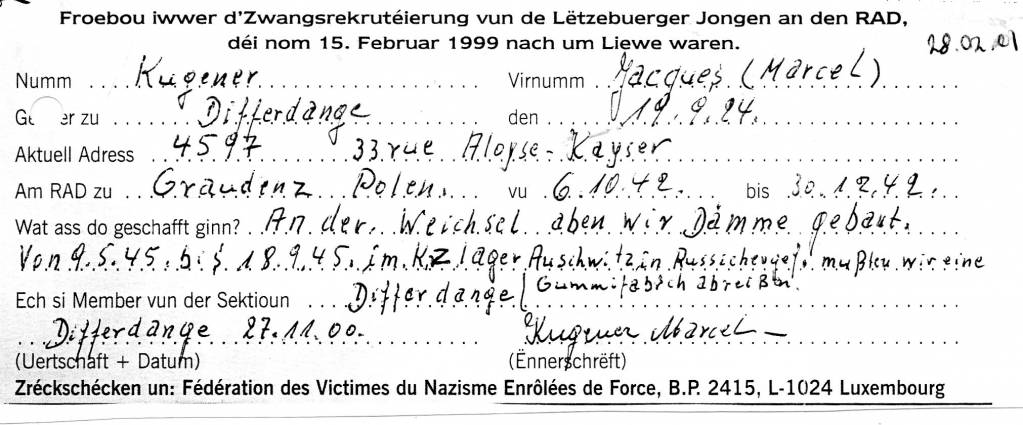 Froebou iwwer d'Zwangsrekrutéierung vun de Lëtzebuerger Jongen an den RAD,
déi nom 15. Februar 1999 nach um Liewe waren.
28.02.01
Numm Kugener Virnumm Jacques (Marcel)
Ge er zu Differdange den 19.9.24.
Aktuell Adress 4597 33 rue Aloyse-Kayser
Am RAD zu Graudenz Polen. vu 6.10.42. bis 30.12.42.
Wat ass do geschafft ginn? An der Weichsel aben wir Dämme gebaut.
Von 9.5.45. bis 18.9.45. im KZ lager Auschwitz in Russicher gef. mußten wir eine
Gummifabrich abreißen.
Ech si Member vun der Sektioun Differdange
Differdange 27.11.00. Kugener Marcel
(Uertschaft + Datum) (Ënnerschrëft)
Zréckschécken un: Fédération des Victimes du Nazisme Enrôlées de Force, B.P. 2415, L-1024 Luxembourg